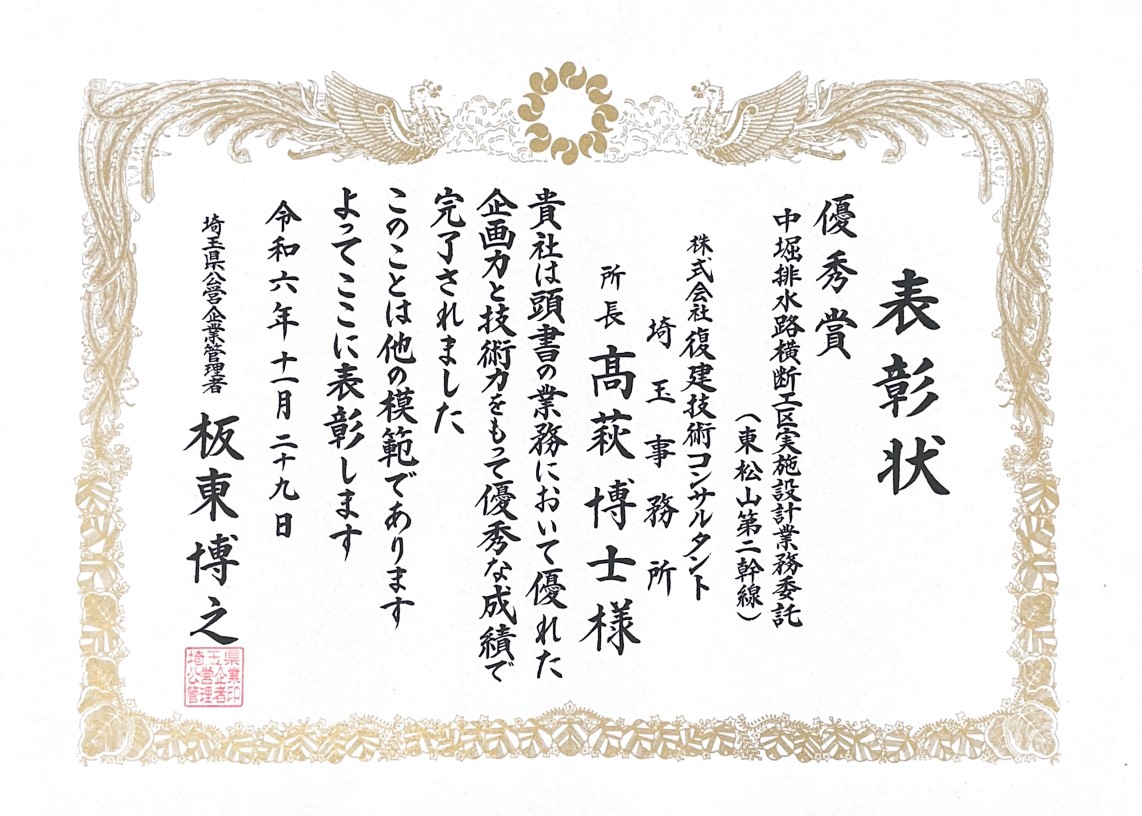 表彰状
優秀賞
中堀排水路横断工区実施設計業務委託
(東松山第二幹線)
株式会社復建技術コンサルタント
埼玉事務所
所長 髙萩博士様
貴社は頭書の業務において優れた
企画力と技術力をもって優秀な成績で
完了されました
このことは他の模範であります
よってここに表彰します
令和六年十一月二十九日
埼玉県公営企業管理者 板東博之
埼玉県公営企業管理者印